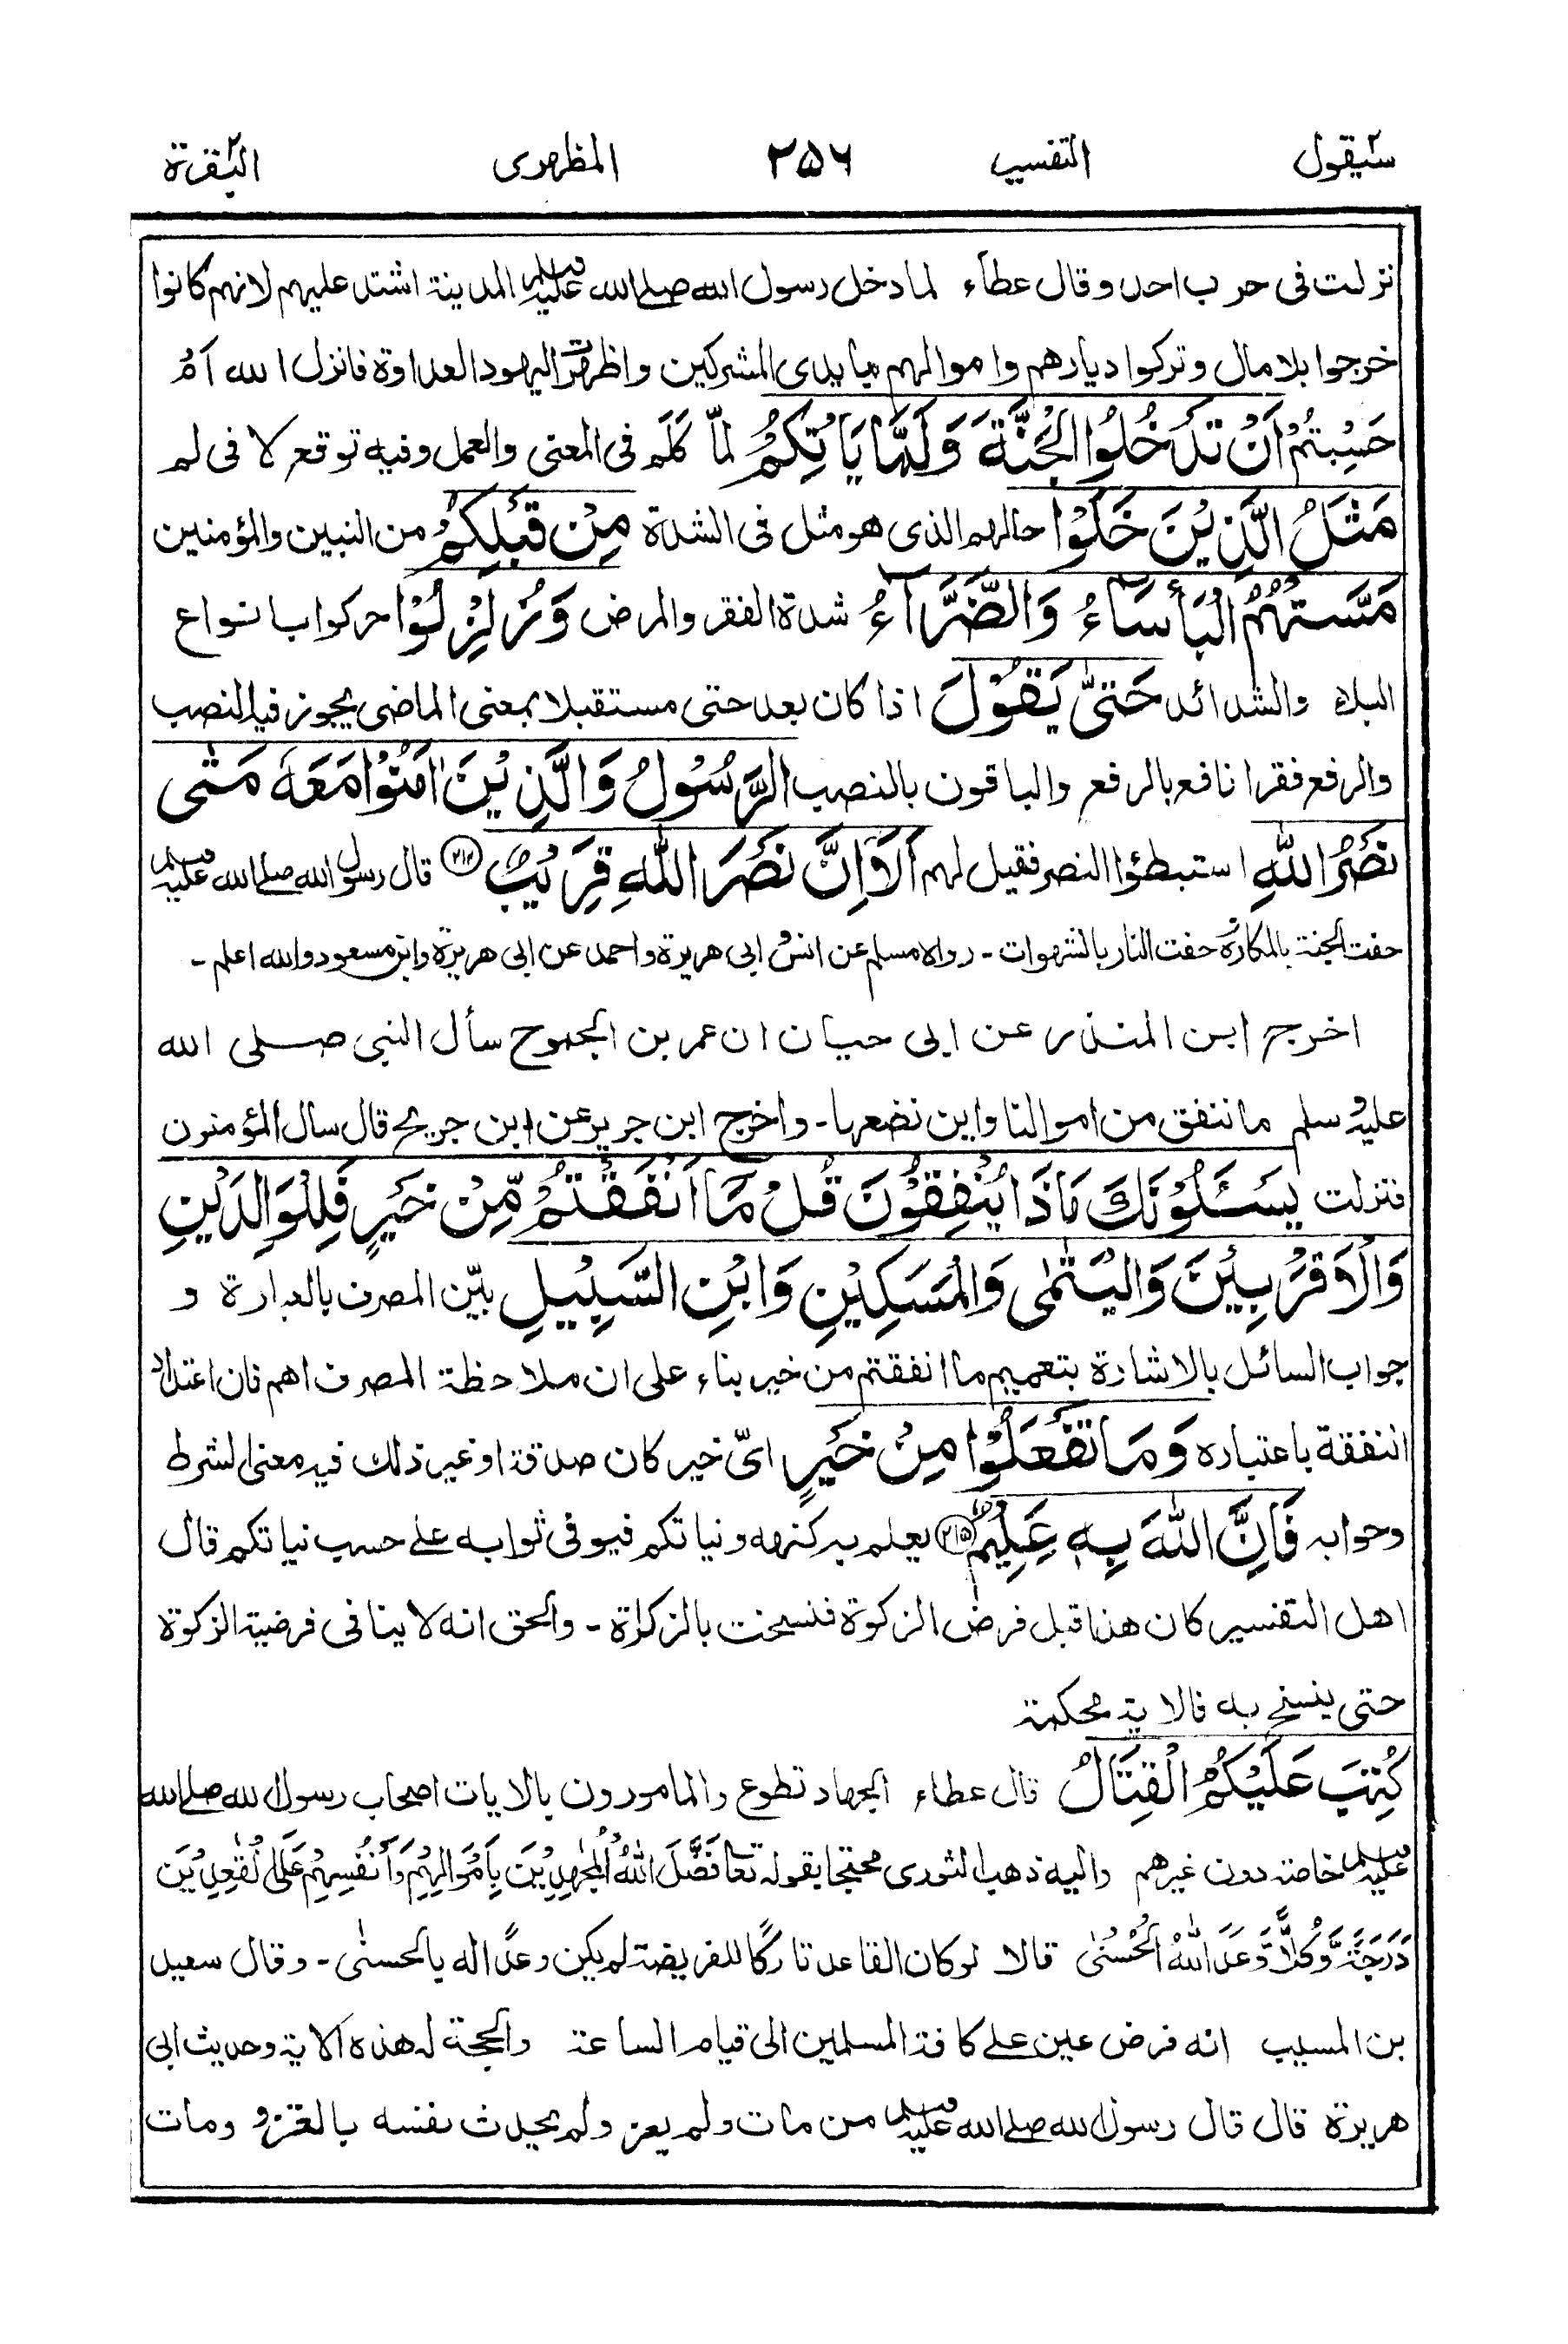 سيقول ٢ التفسير ٢٥٦ المظهرى البقرة ٢
نزلت فى حرب احد وقال عطاء لما دخل رسول الله صلے الله عليه وسلم المدينة اشتد عليهم لانهم كانوا
خرجوا بلا مال وتركوا ديارهم واموالهم بايدى المشركين واظهرت اليهود العداوة فانزل الله اَمْ
حَسِبْتُمْ اَنْ تَدْخُلُوا الْجَنَّةَ وَلَمَّا يَاْتِكُمْ لمّا كَلَم فى المعنى والعمل وفيه توقع لا فى لم
مَثَلُ الَّذِيْنَ خَلَوْا حالهم الذى هو مثل فى الشدة مِنْ قَبْلِكُمْ من النبين والمؤمنين
مَسَّتْهُمُ الْبَأْسَآءُ وَالضَّرَّآءُ شدة الفقر والمرض وَزُلْزِلُوْا حركوا بانواع
البلاء والشدائد حَتّٰى يَقُوْلَ اذا كان بعد حتى مستقبلا بمعنى الماضى يجوز فيه النصب
والرفع فقرا نافع بالرفع والباقون بالنصب الرَّسُوْلُ وَالَّذِيْنَ اٰمَنُوْا مَعَهٗ مَتٰى
نَصْرُ اللّٰهِ استبطؤا النصر فقيل لهم اَلَآ اِنَّ نَصْرَ اللّٰهِ قَرِيْبٌ ٢١٤ قال رسول الله صلے الله عليه وسلم
حفت الجنة بالمكاره وحفت النار بالشهوات - رواه مسلم عن انس وابى هريرة واحمد عن ابى هريرة وابن مسعود والله اعلم -
اخرج ابن المنذر عن ابى حيان ان عمر بن الجموح سأل النبى صلى الله
عليه وسلم ما ننفق من اموالنا واين نضعها - واخرج ابن جرير عن ابن جريج قال سال المؤمنون
فنزلت يَسْـَٔلُوْنَكَ مَاذَا يُنْفِقُوْنَ قُلْ مَآ اَنْفَقْتُمْ مِّنْ خَيْرٍ فَلِلْوَالِدَيْنِ
وَالْاَقْرَبِيْنَ وَالْيَتٰمٰى وَالْمَسٰكِيْنِ وَابْنِ السَّبِيْلِ بيّن المصرف بالعبارة و
جواب السائل بالاشارة بتعميم ما انفقتم من خير بناء على ان ملاحظة المصرف اهم فان اعتداد
النفقة باعتباره وَمَا تَفْعَلُوْا مِنْ خَيْرٍ اىّ خير كان صدقة او غير ذلك فيه معنى الشرط
وجوابه فَاِنَّ اللّٰهَ بِهٖ عَلِيْمٌ ٢١٥ يعلم به كنهه ونياتكم فيوفى ثوابه علے حسب نياتكم قال
اهل التفسير كان هذا قبل فرض الزكوة فنسخت بالزكوة - والحق انه لا ينافى فرضية الزكوة
حتى ينسخ به فالاية محكمة
كُتِبَ عَلَيْكُمُ الْقِتَالُ قال عطاء الجهاد تطوع والمامورون بالايات اصحاب رسول الله صلے الله
عليه وسلم خاصة دون غيرهم واليه ذهب الثورى محتجا بقوله تعا فَضَّلَ اللّٰهُ الْمُجٰهِدِيْنَ بِاَمْوَالِهِمْ وَاَنْفُسِهِمْ عَلَى الْقٰعِدِيْنَ
دَرَجَةً وَّكُلًّا وَّعَدَ اللّٰهُ الْحُسْنٰى قالا لو كان القاعد تاركًا للفريضة لم يكن وعدًا له بالحسنٰى - وقال سعيد
بن المسيب انه فرض عين علے كافة المسلمين الى قيام الساعة والحجة له هذه الاية وحديث ابى
هريرة قال قال رسول الله صلے الله عليه وسلم من مات ولم يغز ولم يحدث نفسه بالغزو ومات